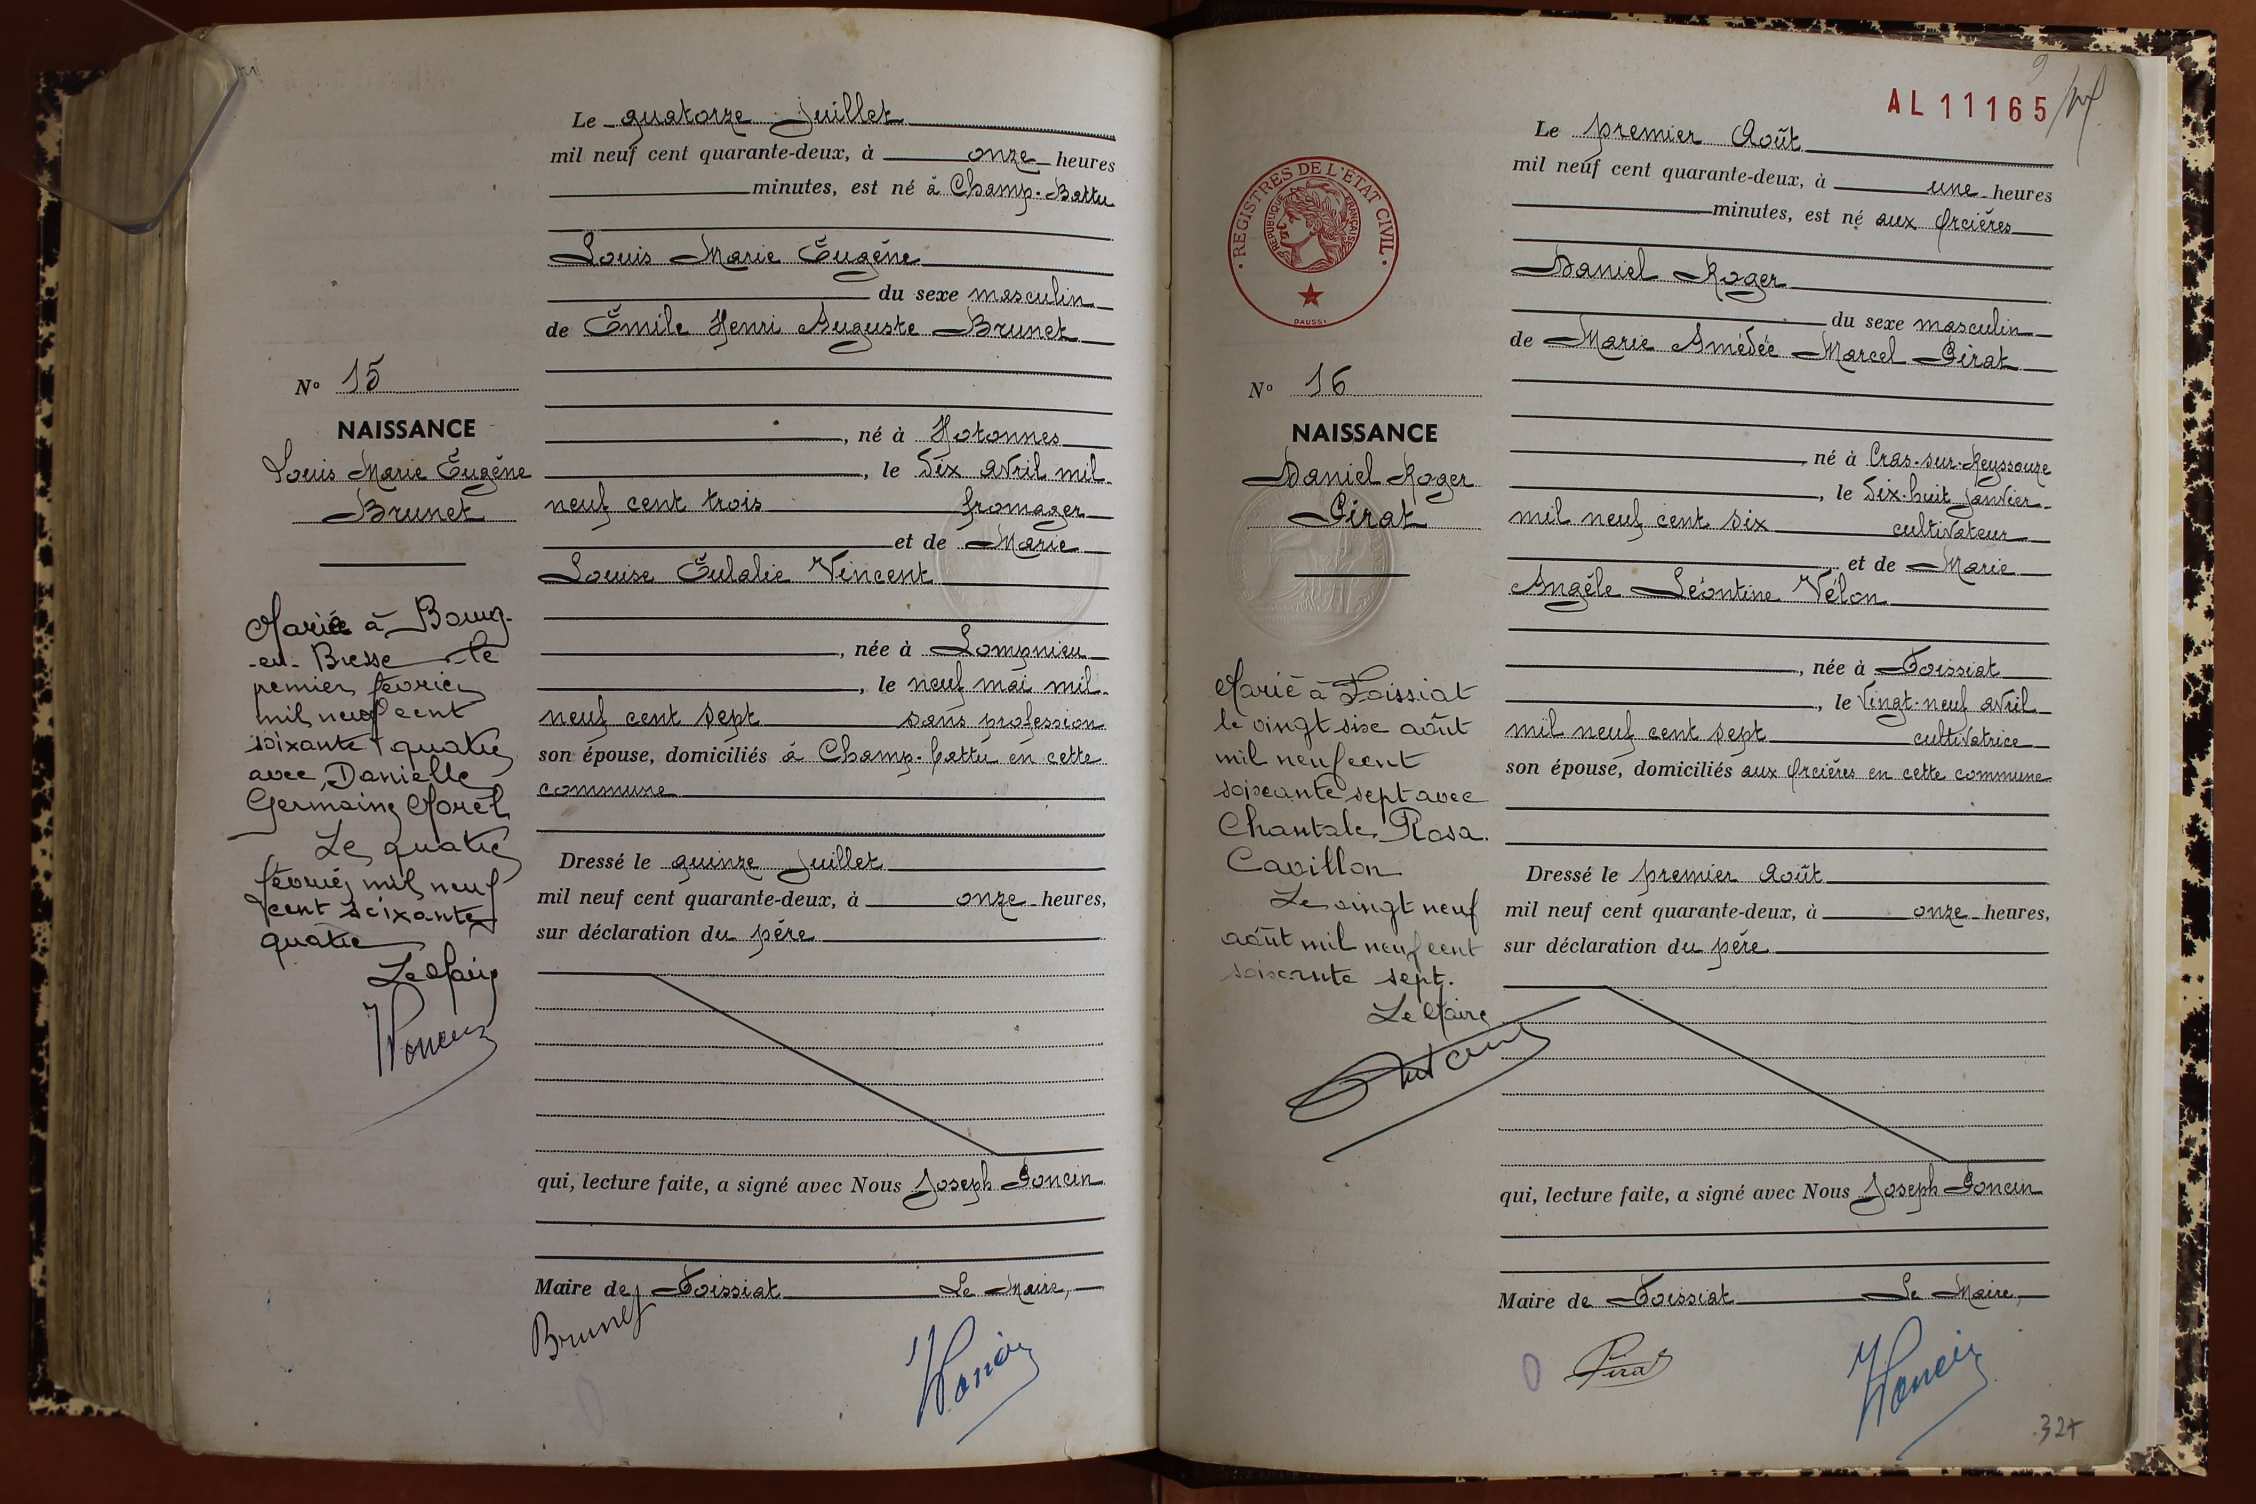 Le quatorze Juillet
mil neuf cent quarante-deux, à onze heures
minutes, est né à Champ-Battu
Louis Marie Eugène
du sexe masculin
de Émile Henri Auguste Brunet
N° 15
NAISSANCE
Louis Marie Eugène
Brunet
, né à Hotonnes
, le dix avril mil
neuf cent trois fromager
et de Marie
Louise Eulalie Vincent
, née à Lompnieu
, le neuf mai mil
neuf cent sept sans profession
son épouse, domiciliés à Champ-battu en cette
commune
Dressé le quinze Juillet
mil neuf cent quarante-deux, à onze heures,
sur déclaration du père
qui, lecture faite, a signé avec Nous Joseph Goncin
Maire de Foissiat Le Maire,
Brunet
Marié à Bourg-
-en-Bresse le
premier février
mil neuf cent
soixante quatre
avec Danielle
Germaine Morel
Le quatre
février mil neuf
cent soixante
quatre
Le Maire
AL 11165
Le premier Août
mil neuf cent quarante-deux, à une heures
minutes, est né aux Orcières
Daniel Roger
du sexe masculin
de Marie Amédée Marcel Pirat
REGISTRES DE L'ÉTAT CIVIL
REPUBLIQUE FRANÇAISE
DAUSSY
N° 16
NAISSANCE
Daniel Roger
Pirat
, né à Cras-sur-Reyssouze
, le dix-huit janvier
mil neuf cent six cultivateur
et de Marie
Angèle Léontine Vélon
, née à Foissiat
, le vingt-neuf avril
mil neuf cent sept cultivatrice
son épouse, domiciliés aux Orcières en cette commune
Dressé le premier Août
mil neuf cent quarante-deux, à onze heures,
sur déclaration du père
qui, lecture faite, a signé avec Nous Joseph Goncin
Maire de Foissiat Le Maire,
Pirat
Marié à Foissiat
le vingt six août
mil neuf cent
soixante sept avec
Chantale Rosa
Cavillon
Le vingt neuf
août mil neuf cent
soixante sept.
Le Maire
327